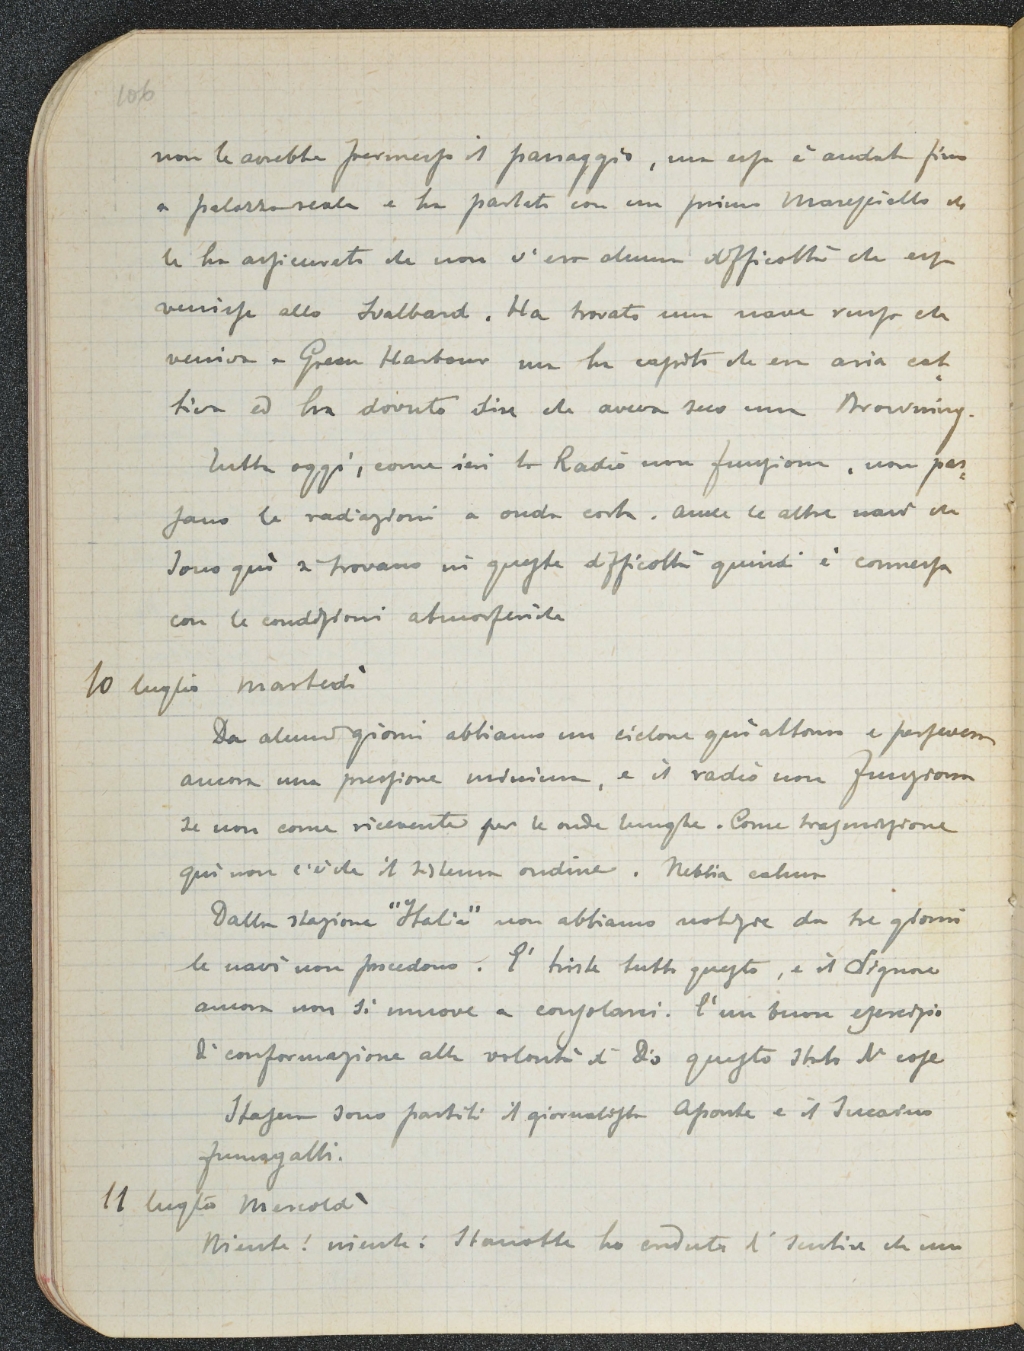 106
non le avrebbe permesso il passaggio, ma essa è andata fino
a palazzo reale e ha parlato con un primo Maresciallo che
le ha assicurato che non v'era alcuna difficoltà che essa
venisse allo Svalbard. Ha trovato una nave russa che
veniva a Green Harbour ma ha capito che era aria cat
tiva ed ha dovuto dire che aveva seco una Browning.
Tutto oggi, come ieri la Radio non funziona, non pas
sano le radiazioni a onda corta. Anche le altre navi che
sono qui si trovano in queste difficoltà quindi è connessa
con le condizioni atmosferiche
10 luglio Martedì
Da alcuni giorni abbiamo un ciclone qui attorno e persevera
ancora una pressione minima, e il radio non funziona
se non come ricevente per le onde lunghe. Come trasmissione
qui non c'è che il sistema ondine. Nebbia calma
Dalla stazione "Italia" non abbiamo notizie da tre giorni
le navi non procedono. E' triste tutto questo, e il Signore
ancora non si muove a consolarci. E' un buon esercizio
di conformazione alla volontà di Dio questo stato di cose
Stasera sono partiti il giornalista Aponte e il
Fumagalli.
11 luglio Mercoldì
Niente! niente! Stanotte ho creduto di sentire che un